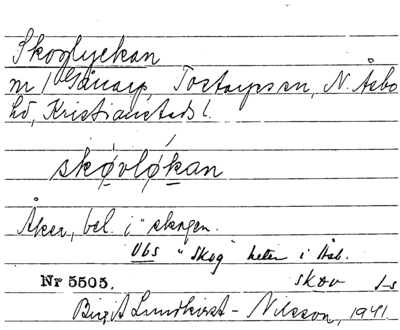 Skoglyckan
nr 1 Gånarp, Tostarps sn, N. Åsbo
hd, Kristianstads l.
skøvløkan
Åker, bel. i skogen.
Obs "skog" heter i Åsb.
Nr 5505. skov
Birgit Lundkvist - Nilsson, 1941.